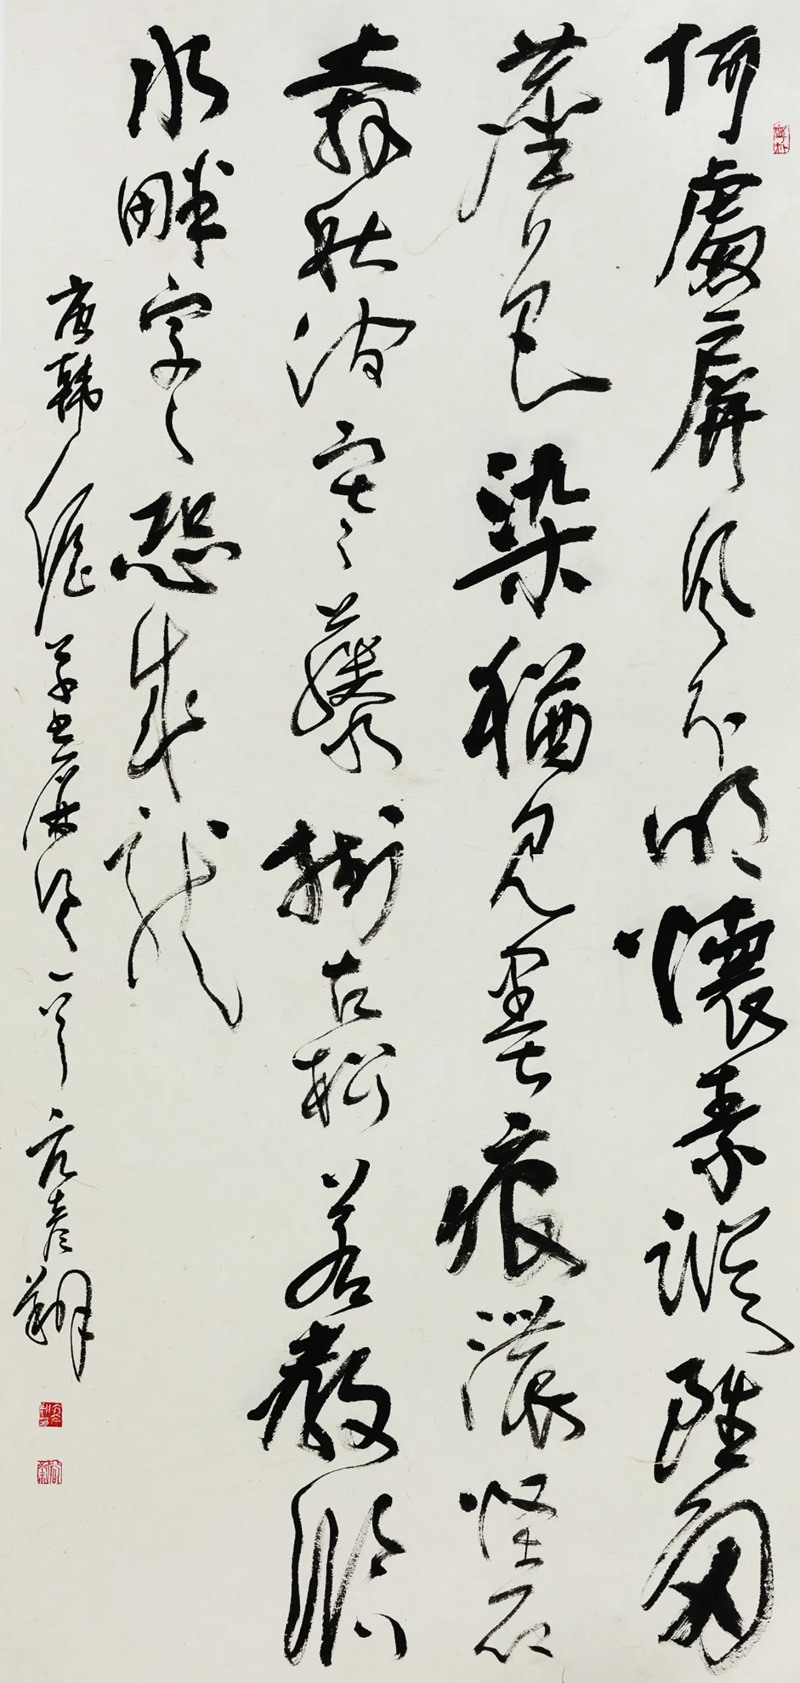 何處一屏風分明懷素蹤雖多
塵色染猶見墨痕濃怪石
奔秋澗寒藤掛古松若教臨
水畔字々恐成龍
唐韓偓草書屏風一首 彦翔